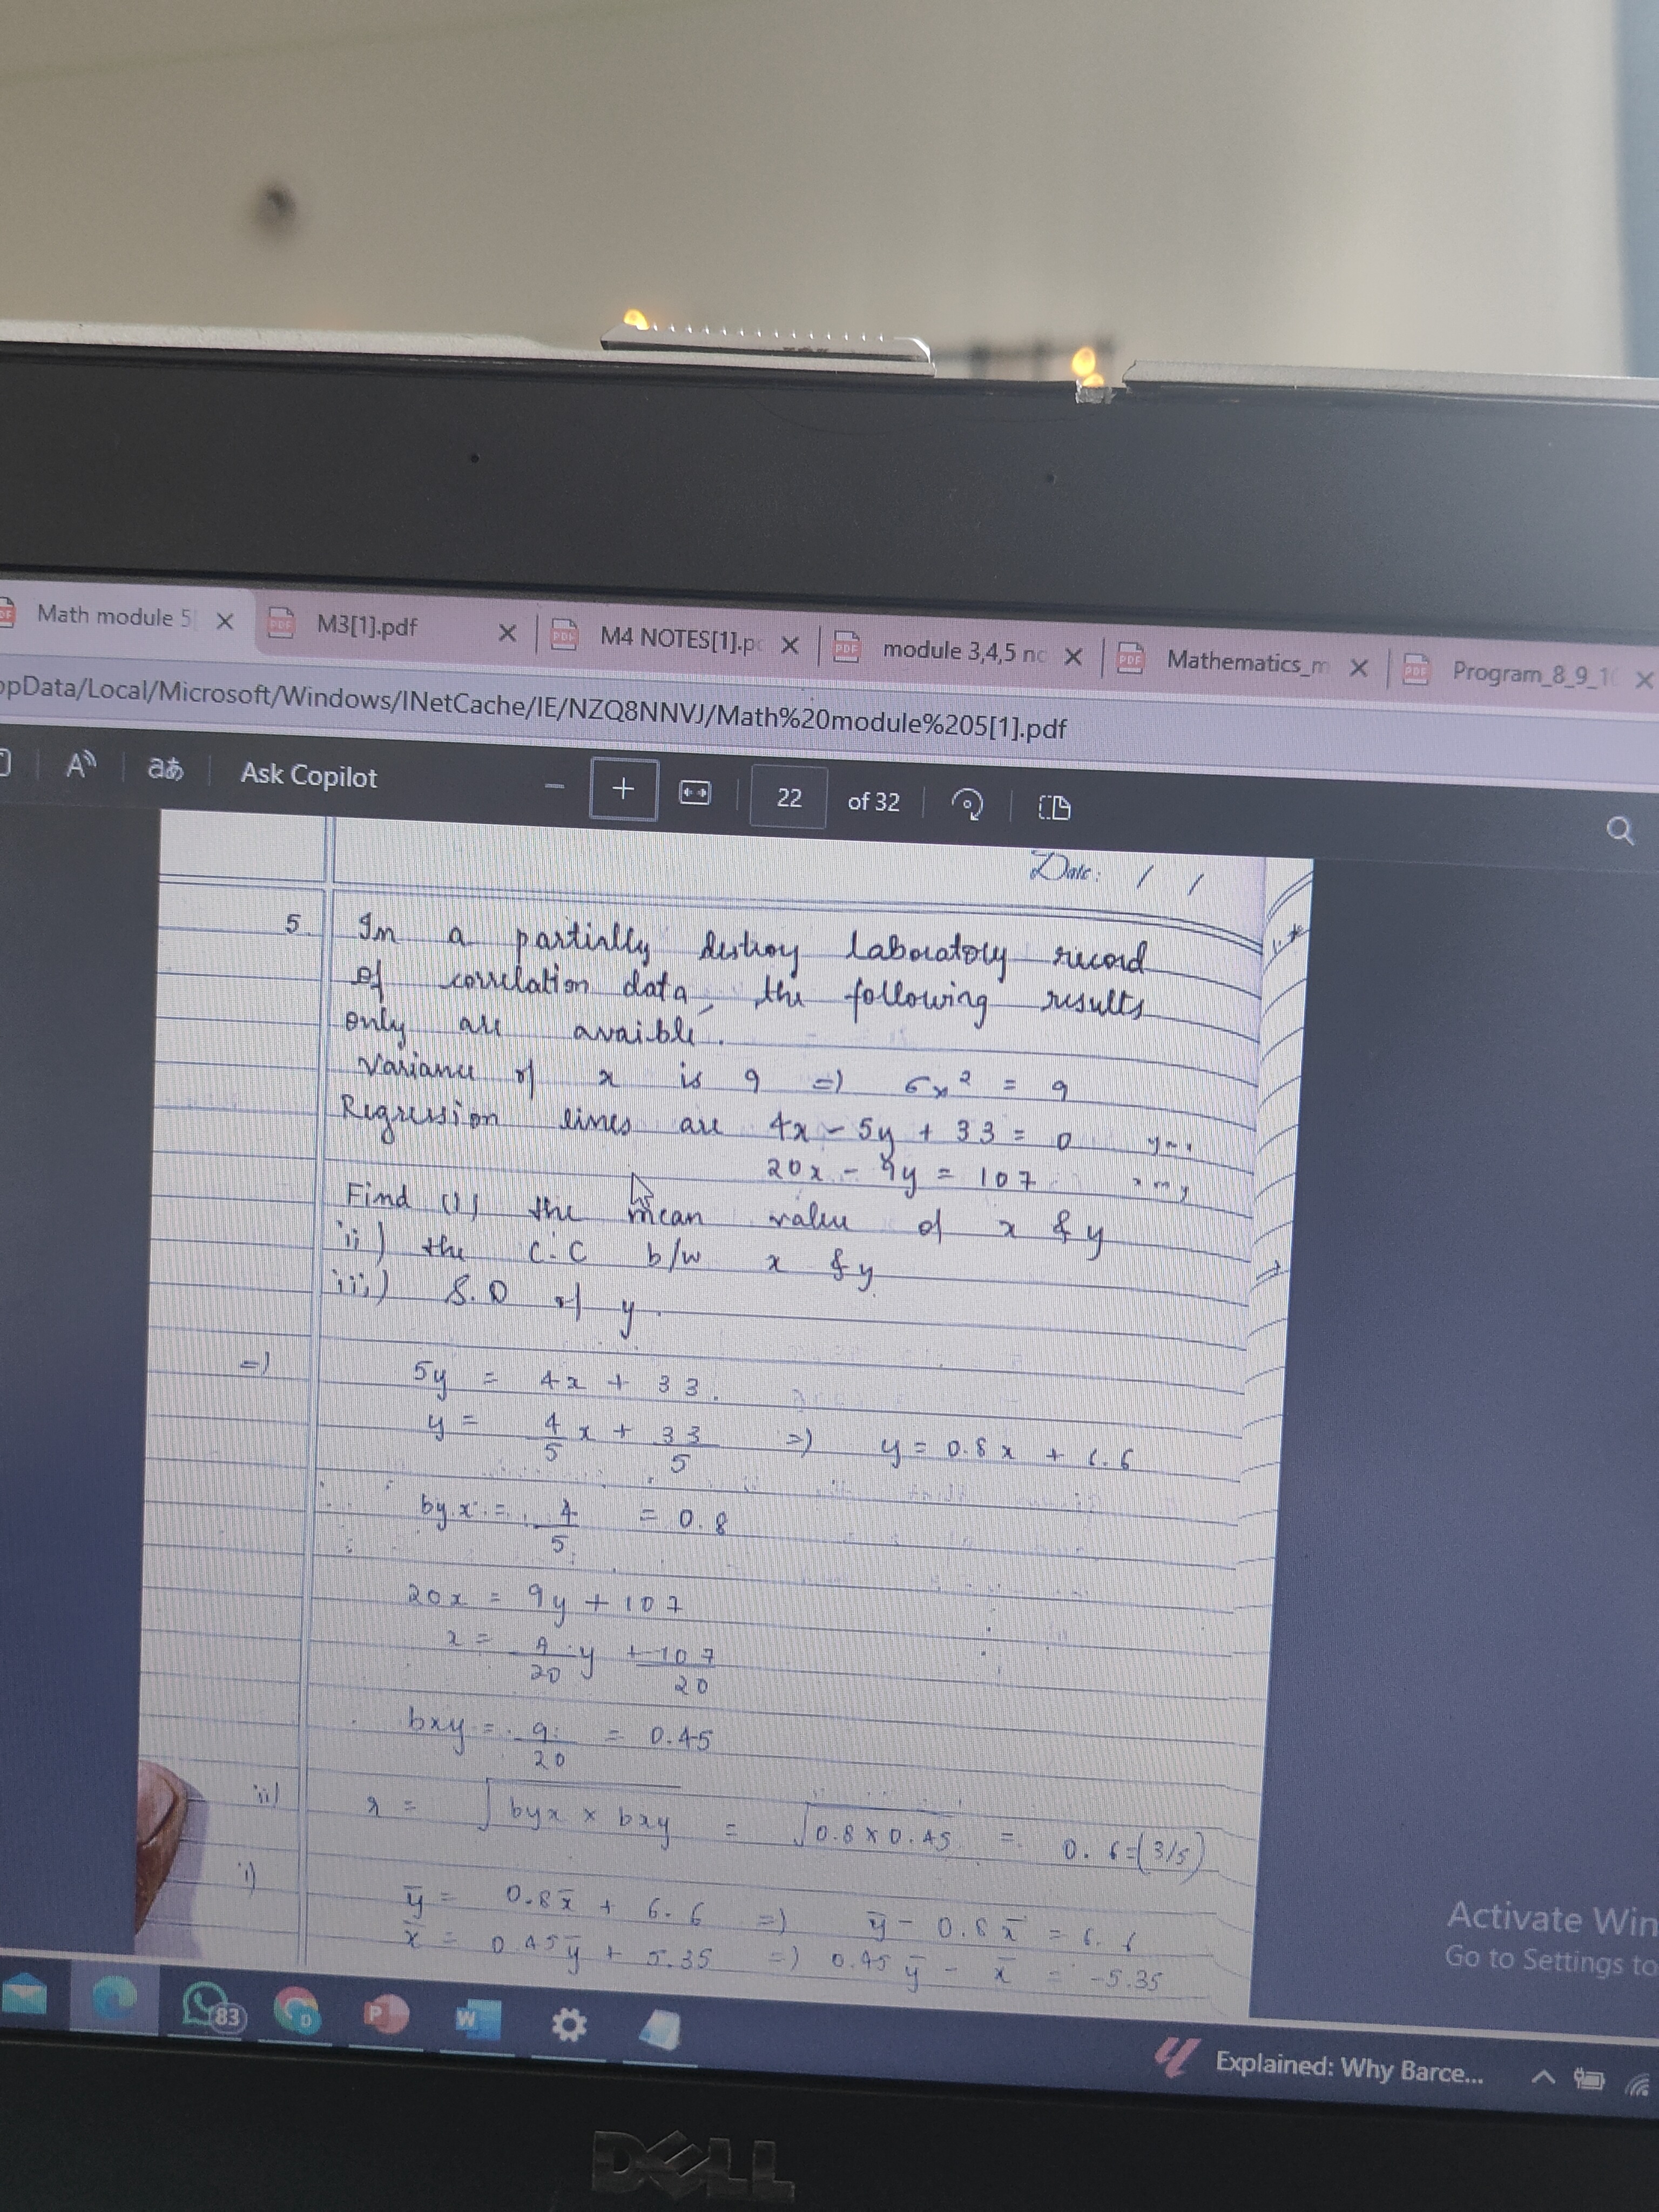 Math module 5 M3[1].pdf M4 NOTES[1].p module 3,4,5 no Mathematics_m Program_8_9_1
ppData/Local/Microsoft/Windows/INetCache/IE/NZQ8NNVJ/Math%20module%205[1].pdf
A aあ Ask Copilot − + 22 of 32
Date: / /
5. In a partially destroy laboratory record
of correlation data, the following results
only are avaible.
Variance of x is 9 => σx² = 9
Regression lines are 4x - 5y + 33 = 0
20x - 9y = 107
Find (i) the mean value of x & y
ii) the C.C b/w x & y
iii) S.D of y.
=> 5y = 4x + 33.
y = 4/5 x + 33/5 => y = 0.8x + 6.6
byx = 4/5 = 0.8
20x = 9y + 107
x = 9/20 y + 107/20
bxy = 9/20 = 0.45
ii) r = √byx × bxy = √0.8 × 0.45 = 0.6 = (3/5)
i) ȳ = 0.8x̄ + 6.6 => ȳ - 0.8x̄ = 6.6
x̄ = 0.45ȳ + 5.35 => 0.45ȳ - x̄ = -5.35
Activate Win
Go to Settings to
83
Explained: Why Barce...
DELL